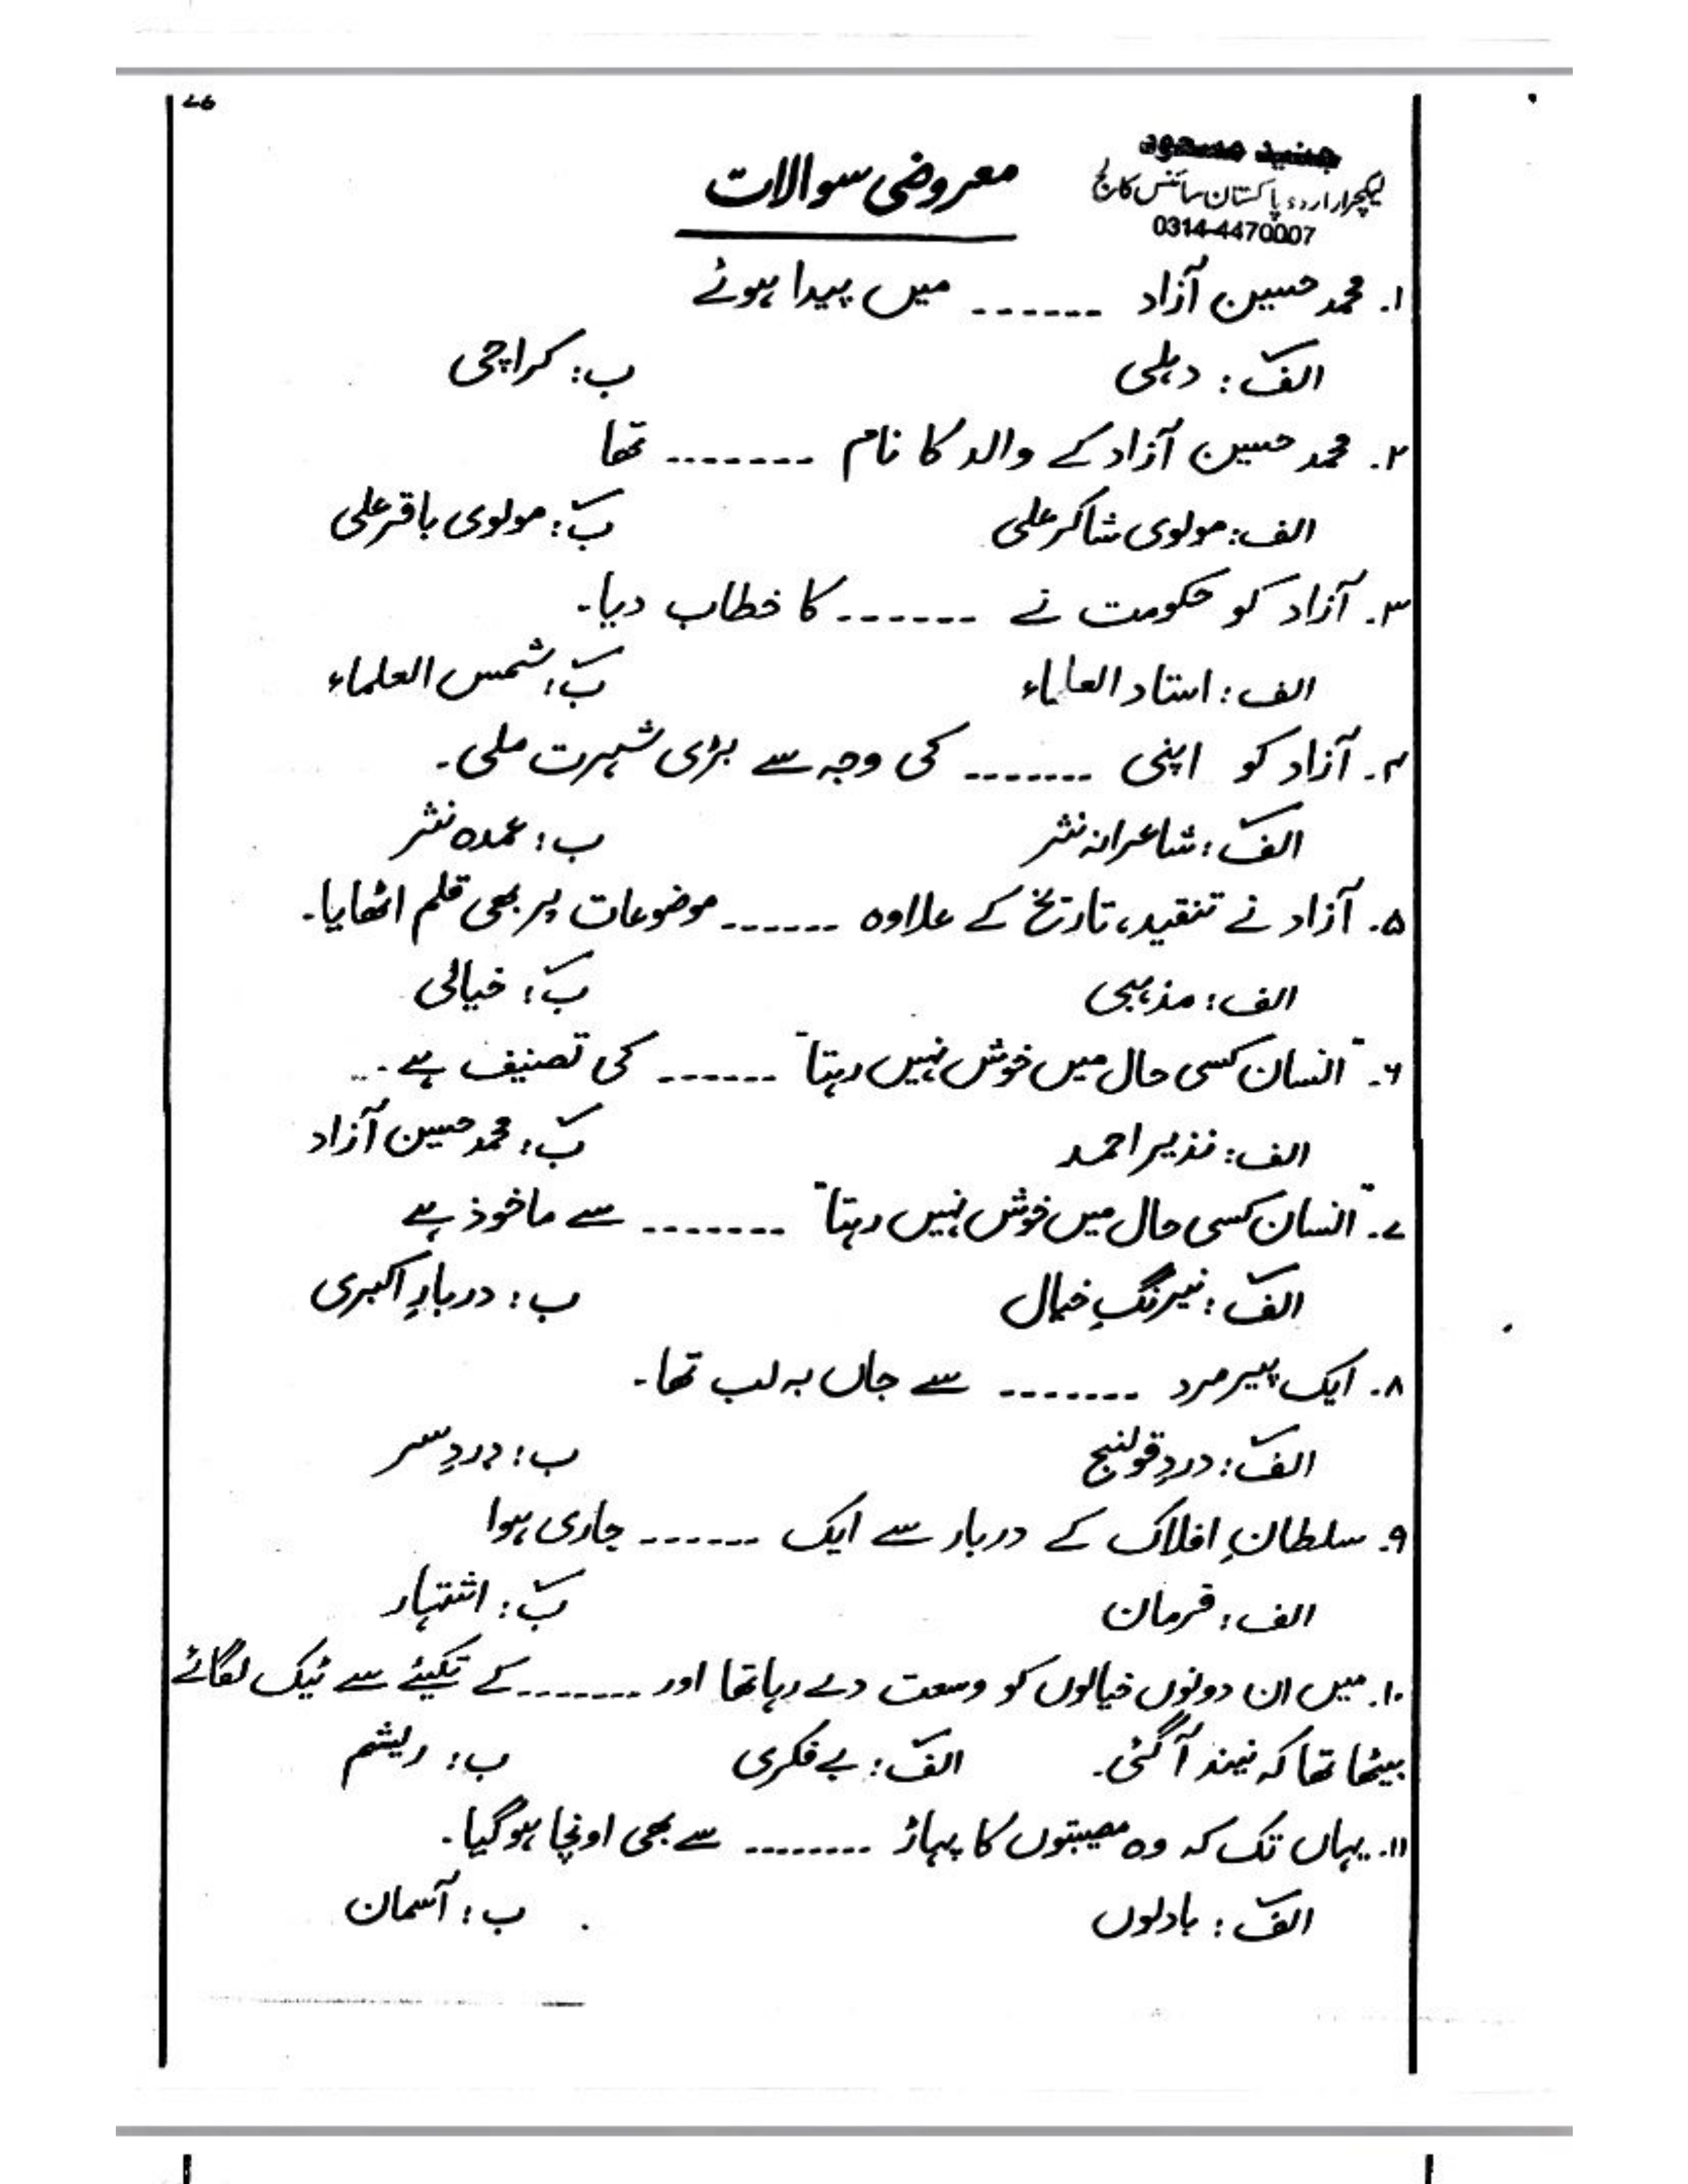 ۷۶
جنید مسعود
لیکچرار اردو پاکستان سائنس کالج
0314-4470007
معروضی سوالات
۱۔ محمد حسین آزاد ------ میں پیدا ہوئے
الف: دہلی ب: کراچی
۲۔ محمد حسین آزاد کے والد کا نام -------- تھا
الف: مولوی شاکر علی ب: مولوی باقر علی
۳۔ آزاد کو حکومت نے ------ کا خطاب دیا۔
الف: استاد العلماء ب: شمس العلماء
۴۔ آزاد کو اپنی ------- کی وجہ سے بڑی شہرت ملی۔
الف: شاعرانہ نثر ب: عمدہ نثر
۵۔ آزاد نے تنقید، تاریخ کے علاوہ ------ موضوعات پر بھی قلم اٹھایا۔
الف: مذہبی ب: خیالی
۶۔ "انسان کسی حال میں خوش نہیں رہتا" ------ کی تصنیف ہے۔
الف: نذیر احمد ب: محمد حسین آزاد
۷۔ "انسان کسی حال میں خوش نہیں رہتا" ------- سے ماخوذ ہے
الف: نیرنگِ خیال ب: دربارِ اکبری
۸۔ ایک پیر مرد ------- سے جاں بہ لب تھا۔
الف: دردِ قولنج ب: دردِ سر
۹۔ سلطانِ افلاک کے دربار سے ایک ------ جاری ہوا
الف: فرمان ب: اشتہار
۱۰۔ میں ان دونوں خیالوں کو وسعت دے رہا تھا اور ------- کے تکیئے سے ٹیک لگائے
بیٹھا تھا کہ نیند آ گئی۔ الف: بے فکری ب: ریشم
۱۱۔ یہاں تک کہ وہ مصیبتوں کا پہاڑ -------- سے بھی اونچا ہو گیا۔
الف: بادلوں ب: آسمان